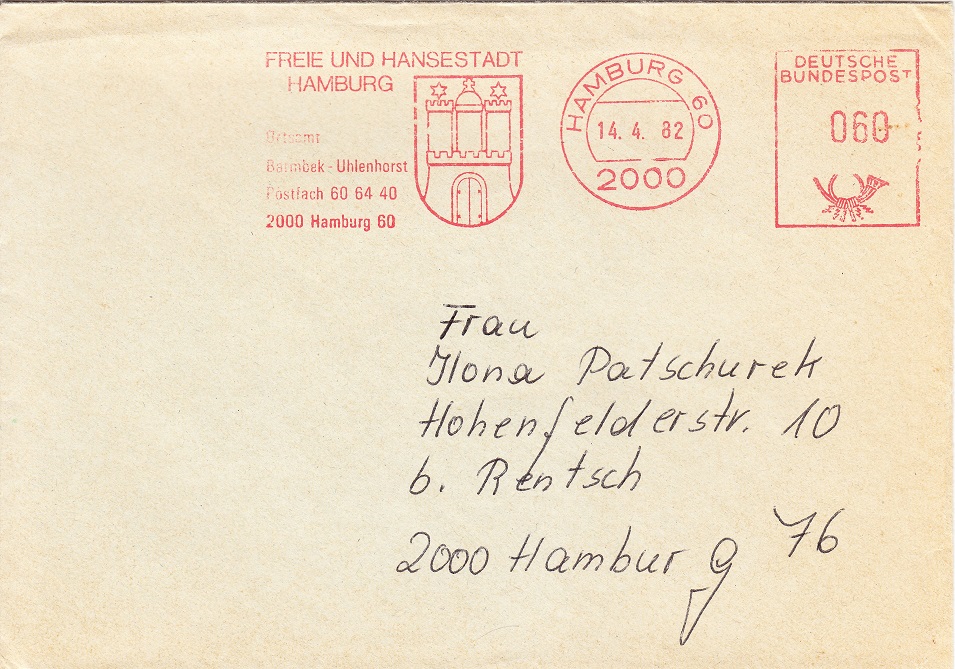 FREIE UND HANSESTADT
HAMBURG
Ortsamt
Barmbek-Uhlenhorst
Postfach 60 64 40
2000 Hamburg 60
HAMBURG 60
14. 4. 82
2000
DEUTSCHE
BUNDESPOST
060
Frau
Ilona Patschurek
Hohenfelderstr. 10
b. Rentsch
2000 Hamburg 76